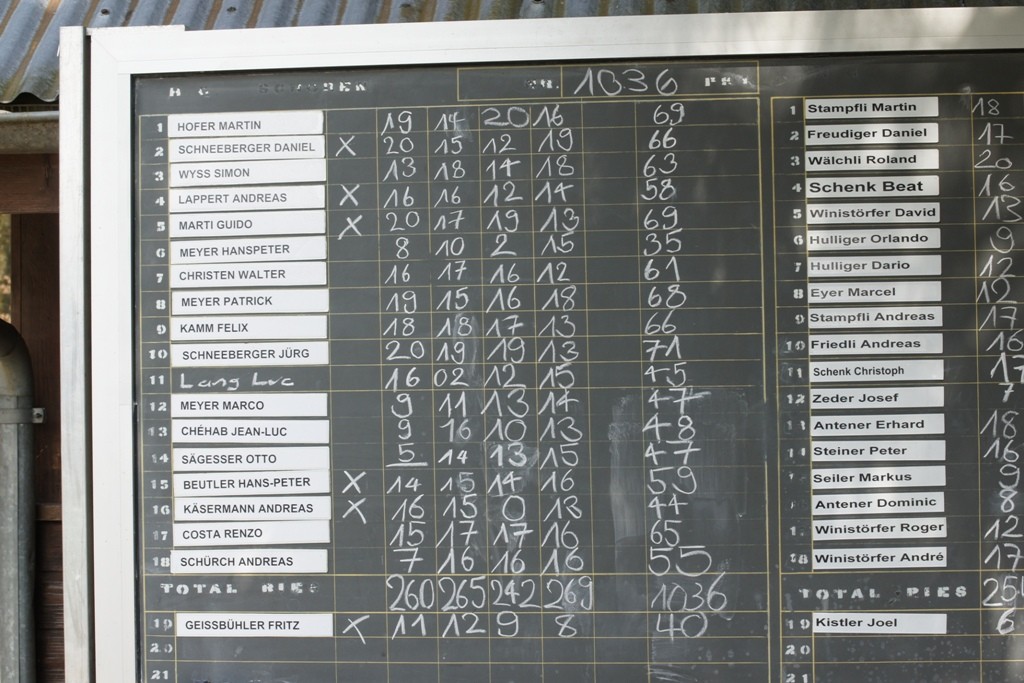 H G NR. 1036 PKT
1 HOFER MARTIN 19 14 20 16 69
2 SCHNEEBERGER DANIEL X 20 15 12 19 66
3 WYSS SIMON 13 18 14 18 63
4 LAPPERT ANDREAS X 16 16 12 14 58
5 MARTI GUIDO X 20 17 19 13 69
6 MEYER HANSPETER 8 10 2 15 35
7 CHRISTEN WALTER 16 17 16 12 61
8 MEYER PATRICK 19 15 16 18 68
9 KAMM FELIX 18 18 17 13 66
10 SCHNEEBERGER JÜRG 20 19 19 13 71
11 Lang Luc 16 02 12 15 45
12 MEYER MARCO 9 11 13 14 47
13 CHÉHAB JEAN-LUC 9 16 10 13 48
14 SÄGESSER OTTO 5 14 13 15 47
15 BEUTLER HANS-PETER X 14 15 14 16 59
16 KÄSERMANN ANDREAS X 16 15 0 13 44
17 COSTA RENZO 15 17 17 16 65
18 SCHÜRCH ANDREAS 7 16 16 16 55
TOTAL RIES 260 265 242 269 1036
19 GEISSBÜHLER FRITZ X 11 12 9 8 40
20
21
1 Stampfli Martin 18
2 Freudiger Daniel 17
3 Wälchli Roland 20
4 Schenk Beat 16
5 Winistörfer David 13
6 Hulliger Orlando 9
7 Hulliger Dario 12
8 Eyer Marcel 12
9 Stampfli Andreas 17
10 Friedli Andreas 16
11 Schenk Christoph 17
12 Zeder Josef 7
13 Antener Erhard 18
14 Steiner Peter 16
Seiler Markus 9
Antener Dominic 8
Winistörfer Roger 12
18 Winistörfer André 17
TOTAL RIES
19 Kistler Joel 6
20
21